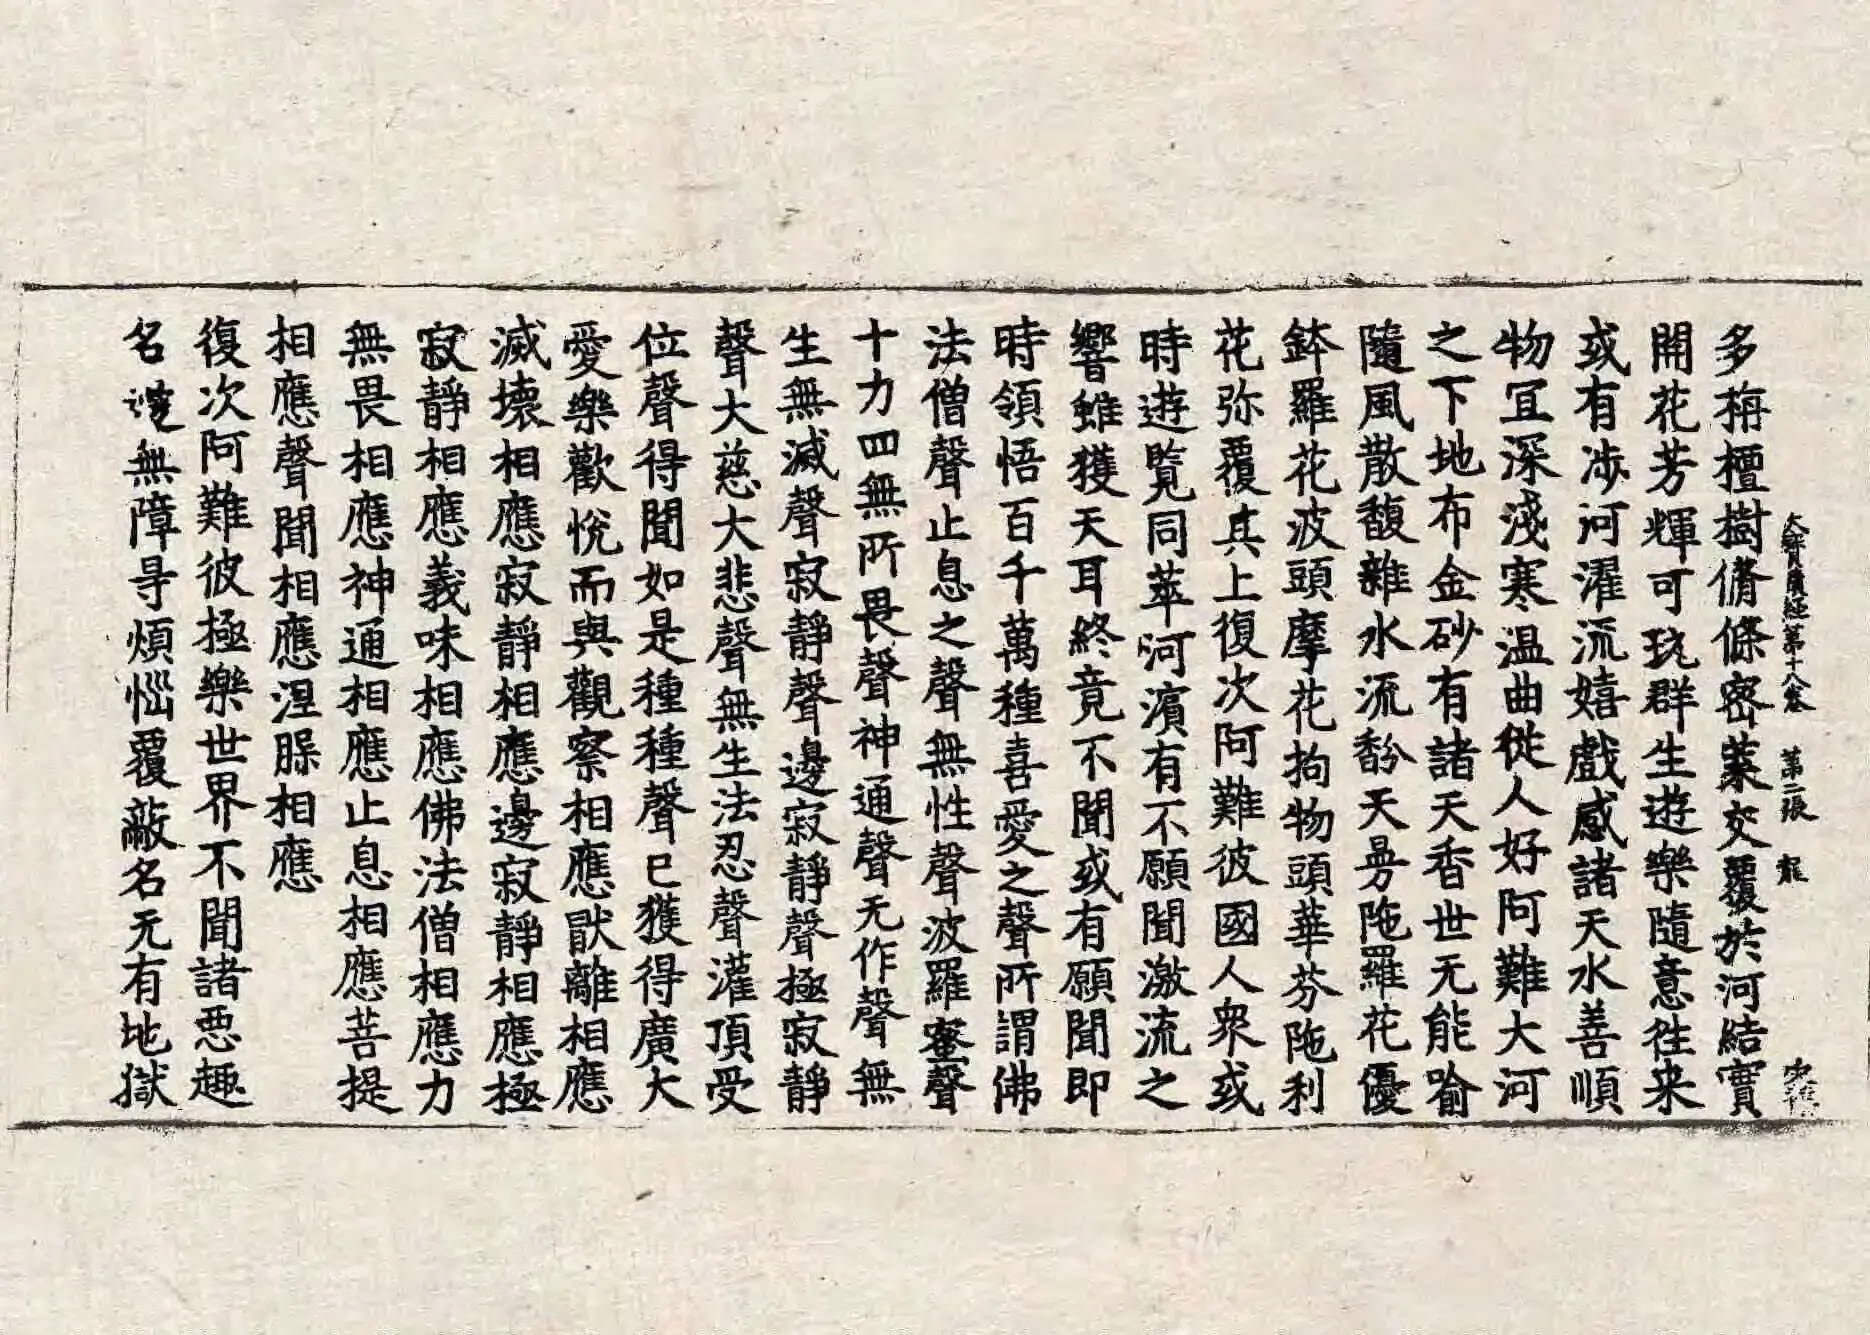 大寶積經第十八卷 第二張 龍
多栴檀樹脩條密葉交覆於河結實
開花芳輝可玩群生遊樂隨意往来
或有涉河濯流嬉戲感諸天水善順
物冝深淺寒温曲從人好阿難大河
之下地布金砂有諸天香世无能喻
隨風散馥雜水流馚天曼陁羅花優
鉢羅花波頭摩花拘物頭華芬陁利
花弥覆其上復次阿難彼國人衆或
時遊覧同萃河濱有不願聞激流之
響雖獲天耳終竟不聞或有願聞即
時領悟百千萬種喜愛之聲所謂佛
法僧聲止息之聲無性聲波羅蜜聲
十力四無所畏聲神通聲无作聲無
生無滅聲寂靜聲邊寂靜聲極寂靜
聲大慈大悲聲無生法忍聲灌頂受
位聲得聞如是種種聲已獲得廣大
愛樂歡悅而與觀察相應猒離相應
滅壞相應寂靜相應邊寂靜相應極
寂靜相應義味相應佛法僧相應力
無畏相應神通相應止息相應菩提
相應聲聞相應涅脲相應
復次阿難彼極樂世界不聞諸惡趣
名邊無障㝵煩惱覆蔽名无有地獄